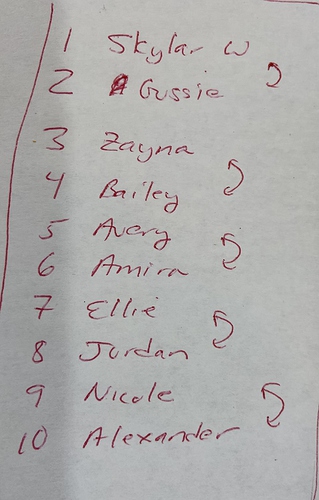 1 Skylar W
2 Gussie
3 Zayna
4 Bailey
5 Avery
6 Amira
7 Ellie
8 Jordan
9 Nicole
10 Alexander